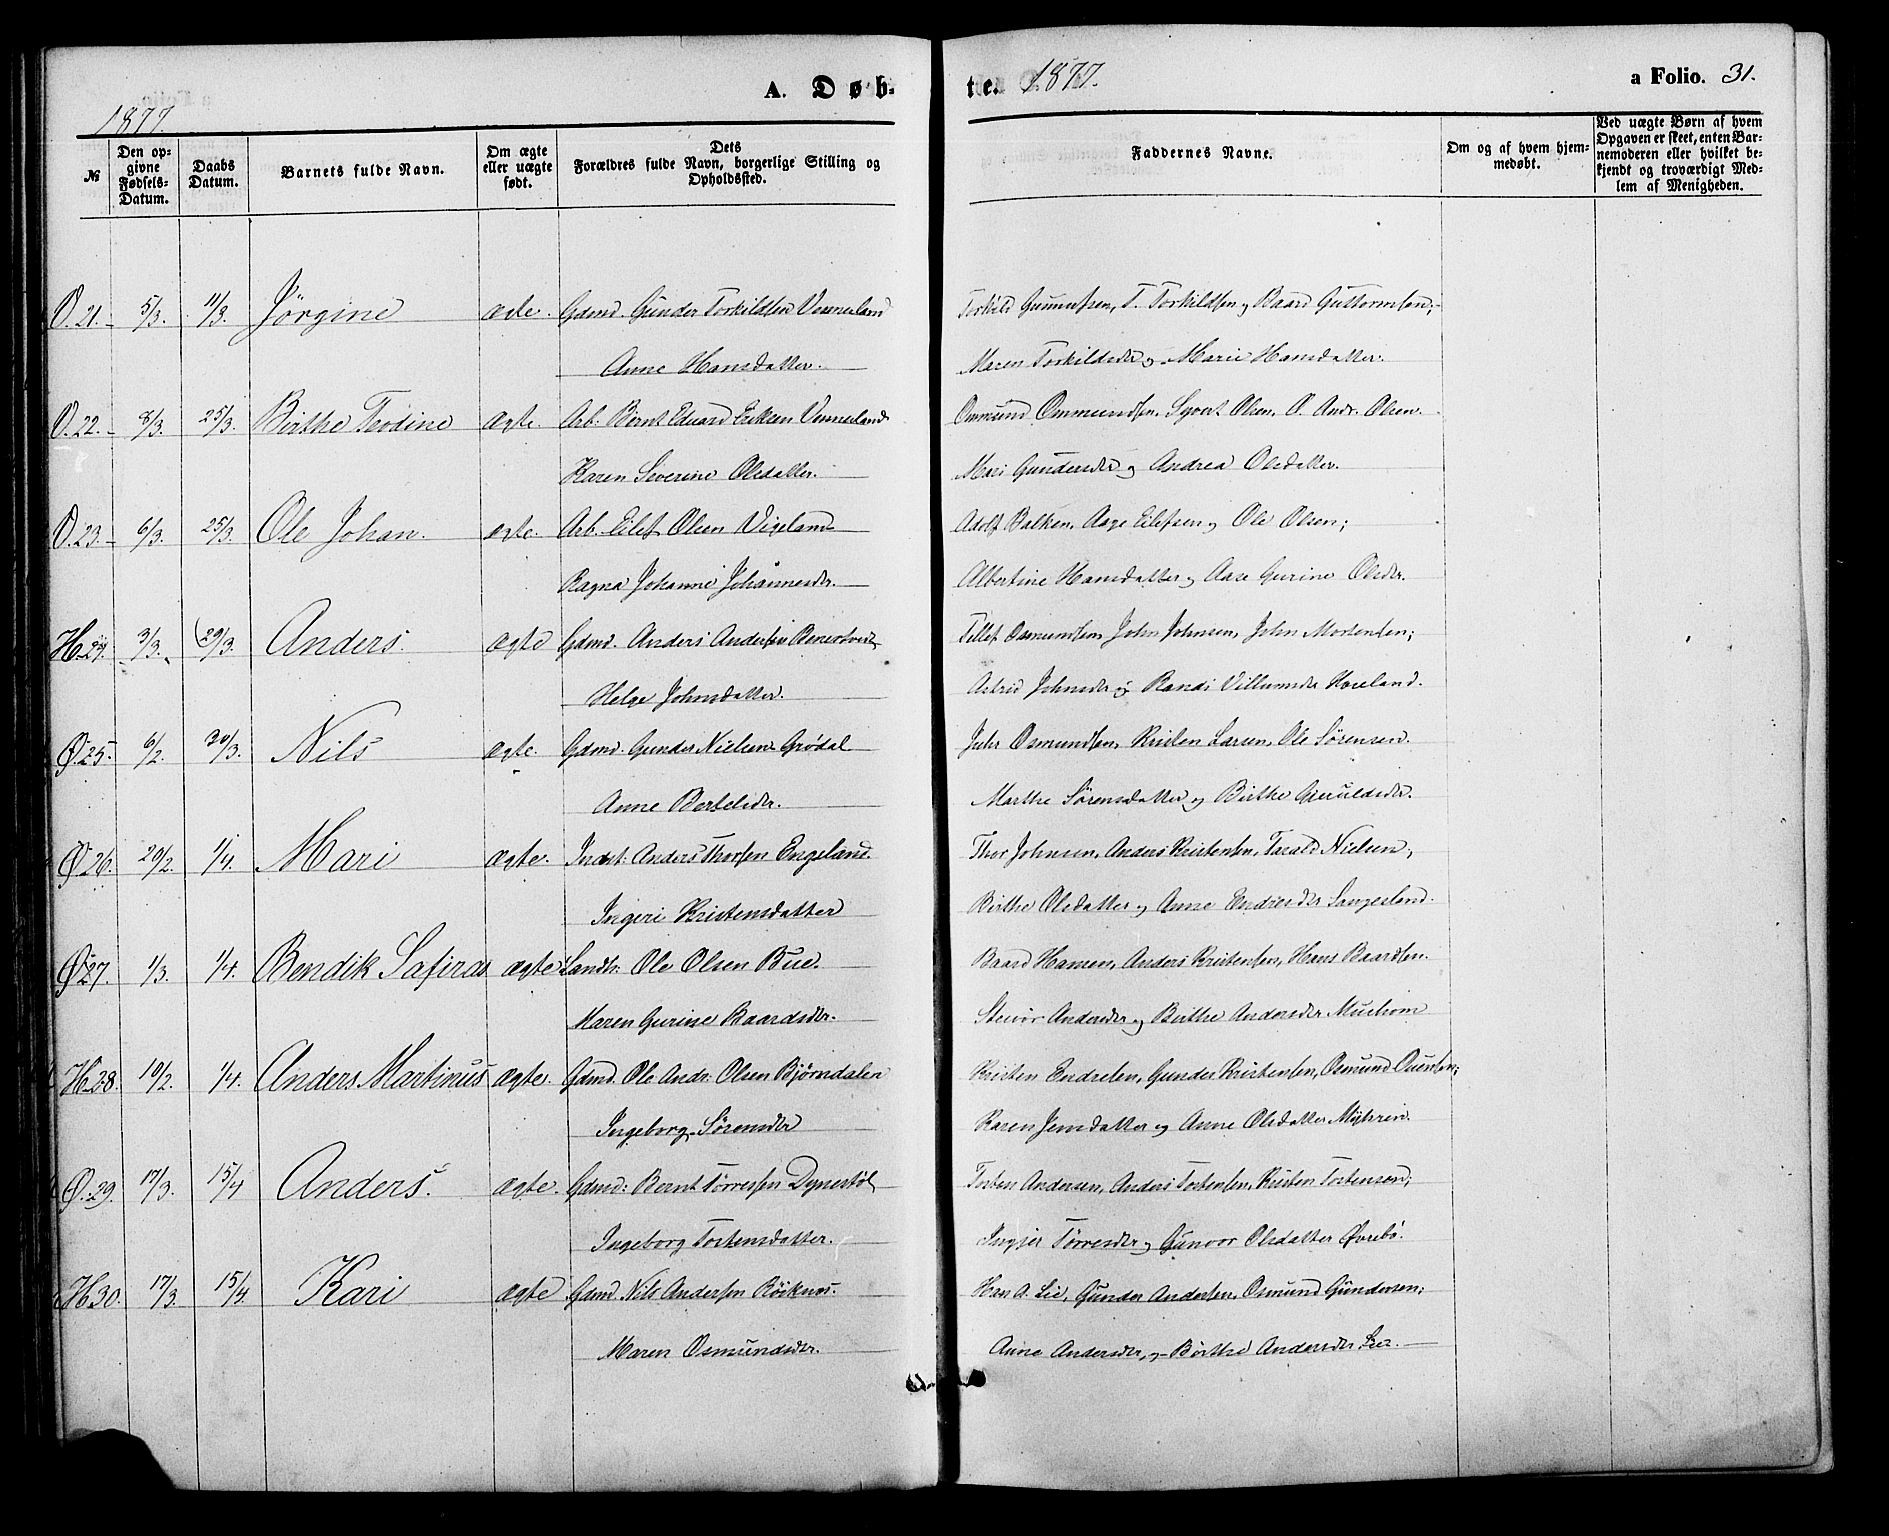 A. Døb-
te. 1877.
a Folio. 31.
1877.
№
Den op-
givne
Fødsels-
Datum.
Daabs
Datum.
Barnets fulde Navn.
Om ægte
eller uægte
født.
Dets
Forældres fulde Navn, borgerlige Stilling og
Opholdssted.
Faddernes Navne.
Om og af hvem hjem-
medøbt.
Ved uægte Børn af hvem
Opgaven er skeet, enten Bar-
nemoderen eller hvilket be-
kjendt og troværdigt Med-
lem af Menigheden.
V. 21. 5/3. 11/3. Jørgine ægte. Gdmd. Gunder Torkildsen Vennesland Torkild Gunnufsen, T. Torkildsen og Baard Guttormsen;
Anne Hansdatter. Maren Torkildsdr og Marie Hansdatter.
V. 22. 8/3. 25/3. Birthe Teodine ægte. Arb. Bernt Eduard Eriksen Vennesland Ommund Ommundsen, Syvert Olsen, O. Andr. Olsen.
Karen Severine Olsdatter. Mari Gundersdr og Andrea Olsdatter.
V. 23. 6/3. 25/3. Ole Johan. ægte. Arb. Eilef Olsen Vigeland Adolf Balken, Aage Eilefsen og Ole Olsen;
Ragna Johanne Johannesdr. Albertine Hansdatter og Aase Gurine Olsdr.
H. 24. 3/3. 29/3. Anders. ægte Gdmd. Anders Andersen Tellef Osmundsen, John Johnsen, John Mortensen;
Helge Johnsdatter. Astrid Johnsdr og Randi Villumsdr Horeland.
Ø. 25. 6/2. 30/3. Nils ægte. Gdmd. Gunder Nielsen Grødal Osmundsen, Kristen Larsen, Ole Sørensen.
Anne Bertelsdr. Marthe Sørensdatter og Birthe Gjeruldsdr.
Ø. 26. 20/2. 1/4. Mari ægte. Indst: Anders Thorsen Engeland. Thor Johnsen, Anders Kristensen, Tarald Nielsen,
Ingeri Kristensdatter Birthe Olsdatter og Anne Endresdr Langesland.
Ø. 27. 1/3. 1/4. Bendik Safiras ægte Landh: Ole Olsen Bue. Baard Hansen, Anders Kristensen, Hans Baardsen.
Maren Gurine Baardsdr. Stenvor Andersdr og Birthe Andersdr
H. 28. 10/2. 1/4. Anders Martinus ægte. Gdmd. Ole Andr: Olsen Bjørndalen Kristen Endresen, Gunder Kristensen, Osmund
Ingeborg Sørensdr Karen Jensdatter og Anne Olsdatter Myhren.
Ø. 29. 17/3. 15/4 Anders. ægte. Gdmd: Bernt Tørresen Dynestøl Torsten Andersen, Anders Torstensen, Kristen Torstensen;
Ingeborg Torstensdatter. Ingjer Tørresdr og Gunvor Olsdatter Øvrebø.
H. 30. 17/3. 15/4. Kari ægte Gdmd. Nils Andersen Røiknes. Hans A. Lie, Gunder Andersen, Osmund Gundersen;
Maren Osmundsdr. Anne Andersdr, og Birthe Andersdr Lie.